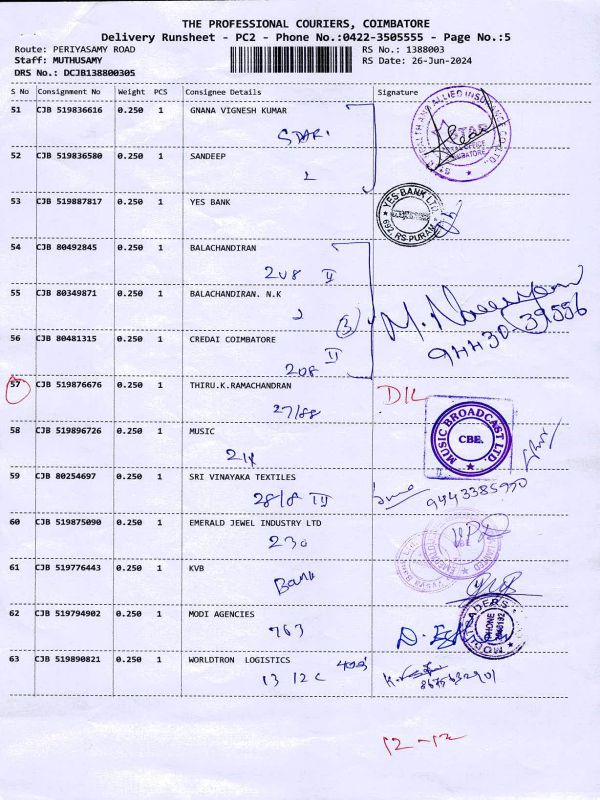 THE PROFESSIONAL COURIERS, COIMBATORE
Delivery Runsheet - PC2 - Phone No.:0422-3505555 - Page No.:5
Route: PERIYASAMY ROAD
RS No.: 1388003
Staff: MUTHUSAMY
RS Date: 26-Jun-2024
DRS No.: DCJB138800305
S No Consignment No Weight PCS Consignee Details Signature
51 CJB 519836616 0.250 1 GNANA VIGNESH KUMAR
STAR
52 CJB 519836580 0.250 1 SANDEEP
53 CJB 519887817 0.250 1 YES BANK
YES BANK LTD.
RS PURAM
54 CJB 80492845 0.250 1 BALACHANDIRAN
208 II
55 CJB 80349871 0.250 1 BALACHANDIRAN. N.K
3
94430-39556
56 CJB 80481315 0.250 1 CREDAI COIMBATORE
208 II
57 CJB 519876676 0.250 1 THIRU.K.RAMACHANDRAN
27/88
D/L
58 CJB 519896726 0.250 1 MUSIC
MUSIC BROADCAST LTD.
CBE.
59 CJB 80254697 0.250 1 SRI VINAYAKA TEXTILES
28/8
9443385950
60 CJB 519875090 0.250 1 EMERALD JEWEL INDUSTRY LTD
230
61 CJB 519776443 0.250 1 KVB
Bank
62 CJB 519794902 0.250 1 MODI AGENCIES
763
PHONE
63 CJB 519890821 0.250 1 WORLDTRON LOGISTICS
13 12 C
8675632901
12-12